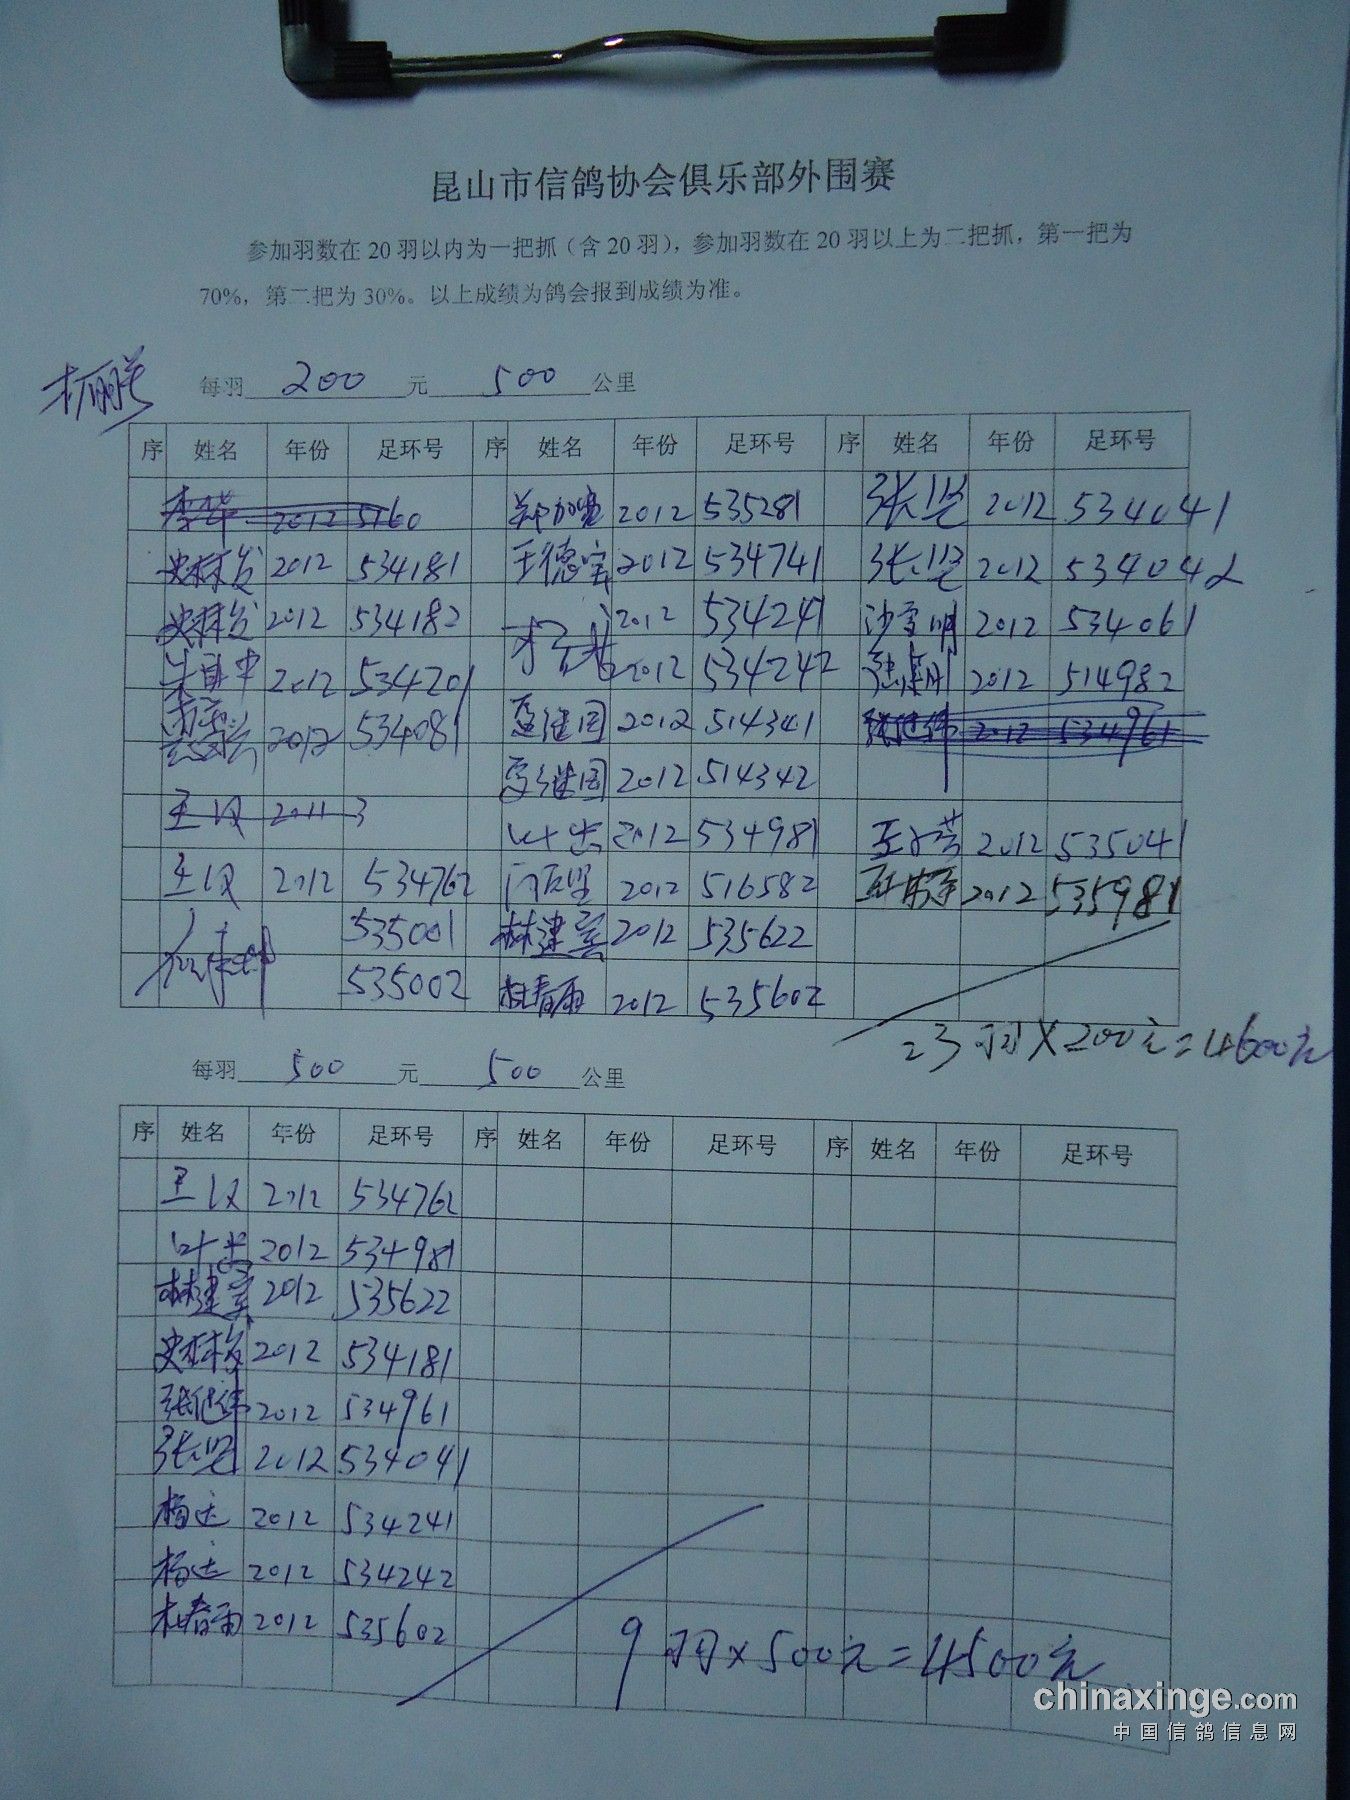 昆山市信鸽协会俱乐部外围赛
参加羽数在 20 羽以内为一把抓（含 20 羽），参加羽数在 20 羽以上为二把抓，第一把为
70%，第二把为 30%。以上成绩为鸽会报到成绩为准。
每羽 200 元 500 公里
序 姓名 年份 足环号 序 姓名 年份 足环号 序 姓名 年份 足环号
李华 2012 5160 2012 535281 张坚 2012 534041
史林发 2012 534181 王德宝 2012 534741 张坚 2012 534042
史林发 2012 534182 2012 534241 沙雪明 2012 534061
2012 534201 2012 534242 2012 514982
2012 534081 夏继国 2012 514341 张继伟 2012 534961
夏继国 2012 514342
王汉 2011 3 叶岩 2012 534981 2012 535041
王汉 2012 534762 2012 516582 2012 535981
535001 林建 2012 535622
535002 杜春雨 2012 535602
23羽×200元=4600元
每羽 500 元 500 公里
序 姓名 年份 足环号 序 姓名 年份 足环号 序 姓名 年份 足环号
王汉 2012 534762
叶岩 2012 534981
林建 2012 535622
史林发 2012 534181
张继伟 2012 534961
张坚 2012 534041
杨运 2012 534241
杨运 2012 534242
杜春雨 2012 535602
9羽×500元=4500元
chinaxinge.com
中国信鸽信息网